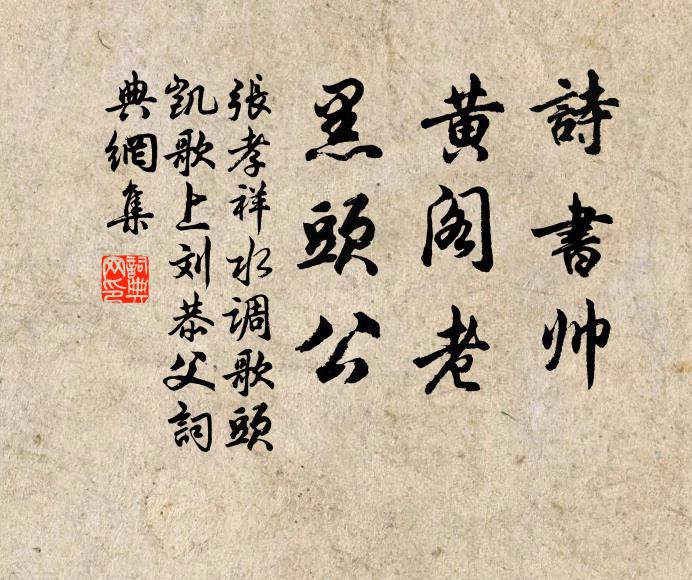 詩書帅
黄阁老
黑頭公
張孝祥水调歌頭
凯歌上刘恭父詞
典網集
詞典
网印